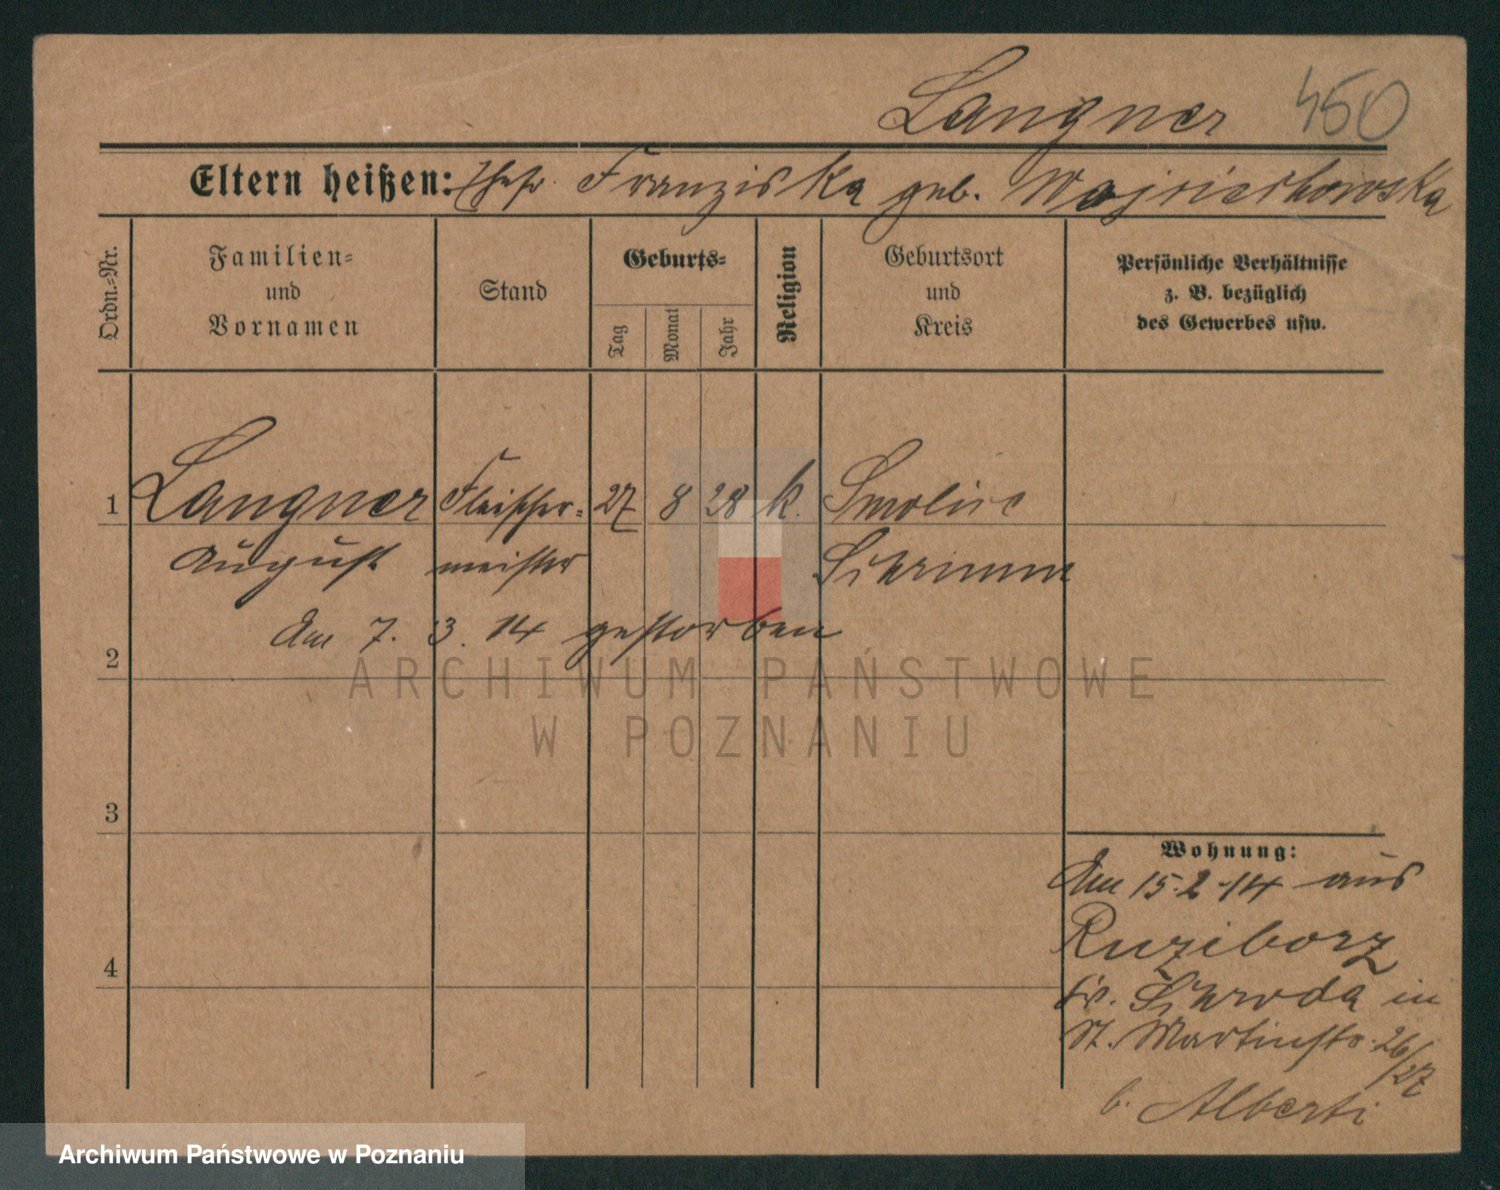 Langner 450
Eltern heißen: Ehefr. Franziska geb. Wojciechowska
Ordn.-Nr.
Familien-
und
Vornamen
Stand
Geburts-
Tag
Monat
Jahr
Religion
Geburtsort
und
Kreis
Persönliche Verhältnisse
z. B. bezüglich
des Gewerbes usw.
1 Langner Fleischer- 27 8 28 k. Smolice
August meister Schrimm
Am 7. 3. 14 gestorben
2
ARCHIWUM PAŃSTWOWE
W POZNANIU
3
Wohnung:
Am 15.2.14 aus
4
Kr. Schroda in
St. Martinstr. 26/27
b. Alberti
Archiwum Państwowe w Poznaniu